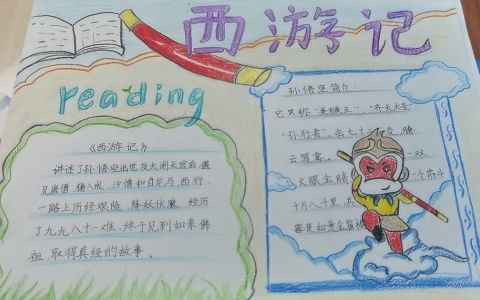 西游记
reading
《西游记》
讲述了孙悟空出世及大闹天宫后遇
见唐僧、猪八戒、沙僧和白龙马,西行
一路上历经艰险,降妖伏魔,经历
了九九八十一难,终于见到如来佛
祖,取得真经的故事。
孙悟空简介:
它又称"美猴王"、"齐天大圣"
"孙行者",会七十 个 腾
云驾雾。 一双
火眼金睛 一个筋斗
十万八千里,